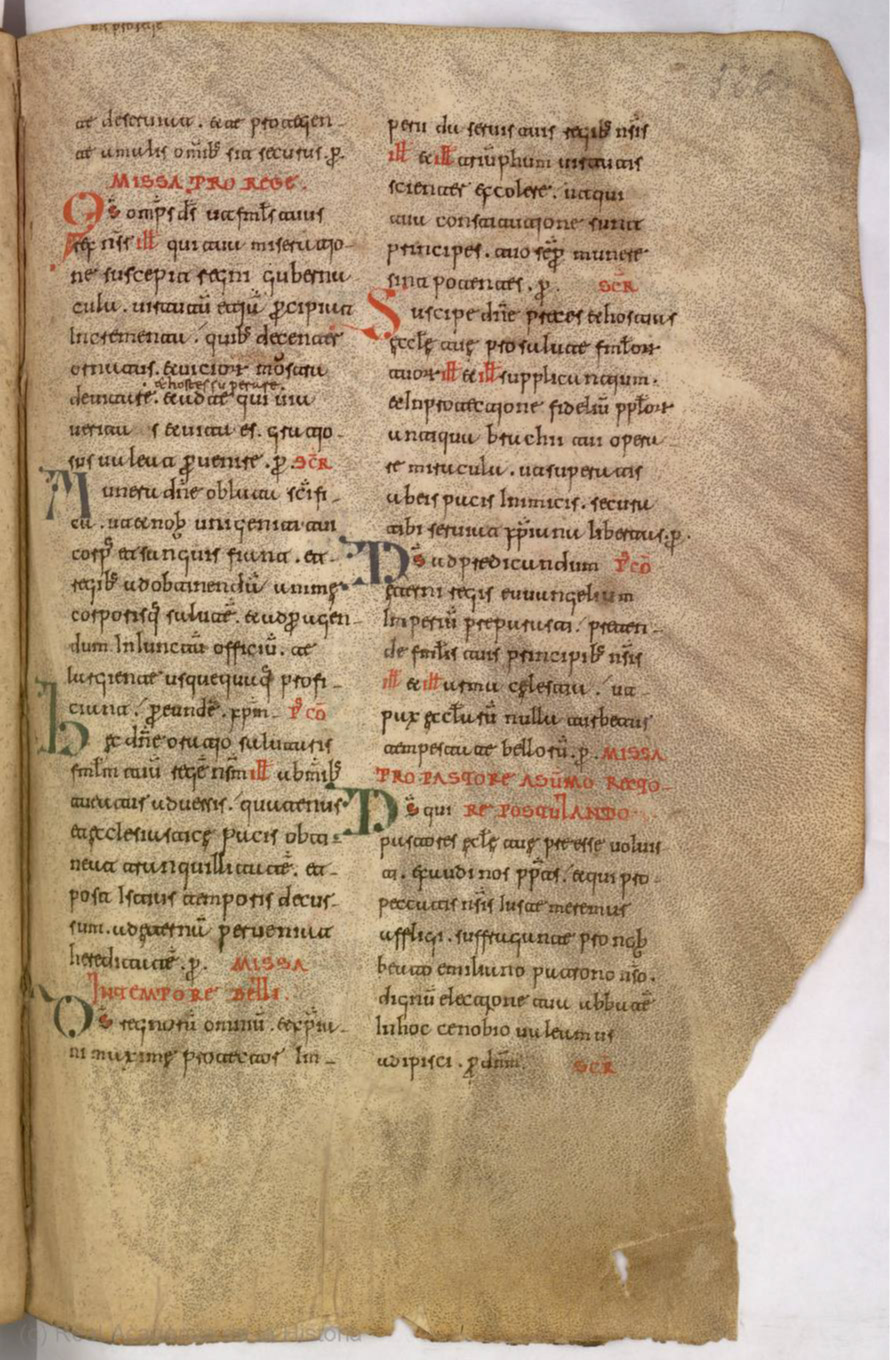 te deseruiat . & te protegen-
te a malis omib; sit securus . p̄.
MISSA PRO REGE .
Q̄s omp̄s d̄s ut fml̄s tuus
rex nr̄s ill̄ qui tua miseratio-
ne suscepit regni guberna
cula . uirtutū etiā p̄cipiat
Incrementa . quib; decenter
ornatus . & uicior monstra
& hostes superare .
deuitare . & ad te qui uia
ueritas & uita es . gratio-
sus ualeat puenire . p̄ . SCR̄
Munera dn̄e oblata sc̄ifi-
ca . ut & nob̄ unigeniti tui
corp̄ & sanguis fiant . et
regib; ad obtinendū anime
corporisq; salutē . & ad pagen-
dum Iniunctū officiū . te
largiente usquequaq; profi-
ciant . p eundē . xp̄m . P̄ CŌ
Hec dn̄e oratio salutaris
fml̄m tuū regē nr̄m ill̄ ab omib;
tueatur aduersis . quatenus
et ecclesiastice pacis obti-
neat tranquillitatē . et
post Istius temporis decur-
sum . ad eternā perueniat
hereditatē . p̄ . MISSA
IN TEMPORE BELLI .
Ds regnorū omniū . & xp̄ia-
ni maxime protector Im-
perii da seruis tuis regib; nr̄is
ill̄ & ill̄ triūphum uirtutis
scienter excolere . ut qui
tua constitutione sunt
principes . tuo sēp munere
sint potentes . p̄ . SCR̄
Suscipe dn̄e preces & hostias
eccle tue pro salute fml̄or
tuor ill̄ & ill̄ supplicantium .
& In protectione fideliū pplor
antiqua brachii tui opera-
re miracula . ut superatis
aberis pacis Inimicis . secura
tibi seruiat xp̄iana libertas . p̄.
Ds ad predicandum P̄ CŌ
eterni regis euuangelium
Imperiū preparasti . preten-
de fml̄is tuis principib; nr̄is
ill̄ & ill̄ arma celestia . ut
pax ecclarū nulla turbetur
tempestate bellorū . p̄ . MISSA
PRO PASTORE ASŪMO RECTO-
RE POSTULANDO .
Ds qui
pastores ecle tue preesse uoluis
ti . exaudi nos pp̄tas . & qui pro
peccatis nr̄is Iuste meremur
affligi . suffragante pro nob̄
beato emiliano patrono nr̄o .
dignū electione tua abbatē
In hoc cenobio ualeamus
adipisci . p dn̄m . SCR̄